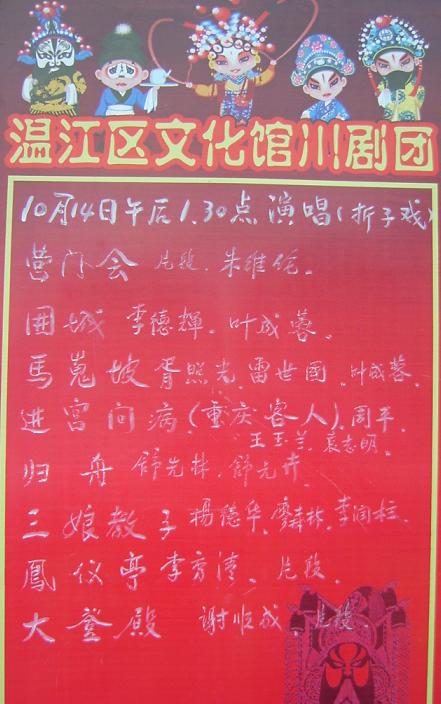 温江区文化馆川剧团
10月14日午后1.30点演唱(折子戏)
营门会 片段.朱维伦.
困城 李德輝.叶成蓉.
馬嵬坡 胥照光.雷世國.叶成蓉.
进宫问病.(重庆客人).周平.
王玉兰.袁志明.
归舟 舒光林.舒光卉.
三娘教子 杨德华.廖森林.李润柱.
鳳仪亭 李方清.片段.
大登殿 谢顺成.片段.